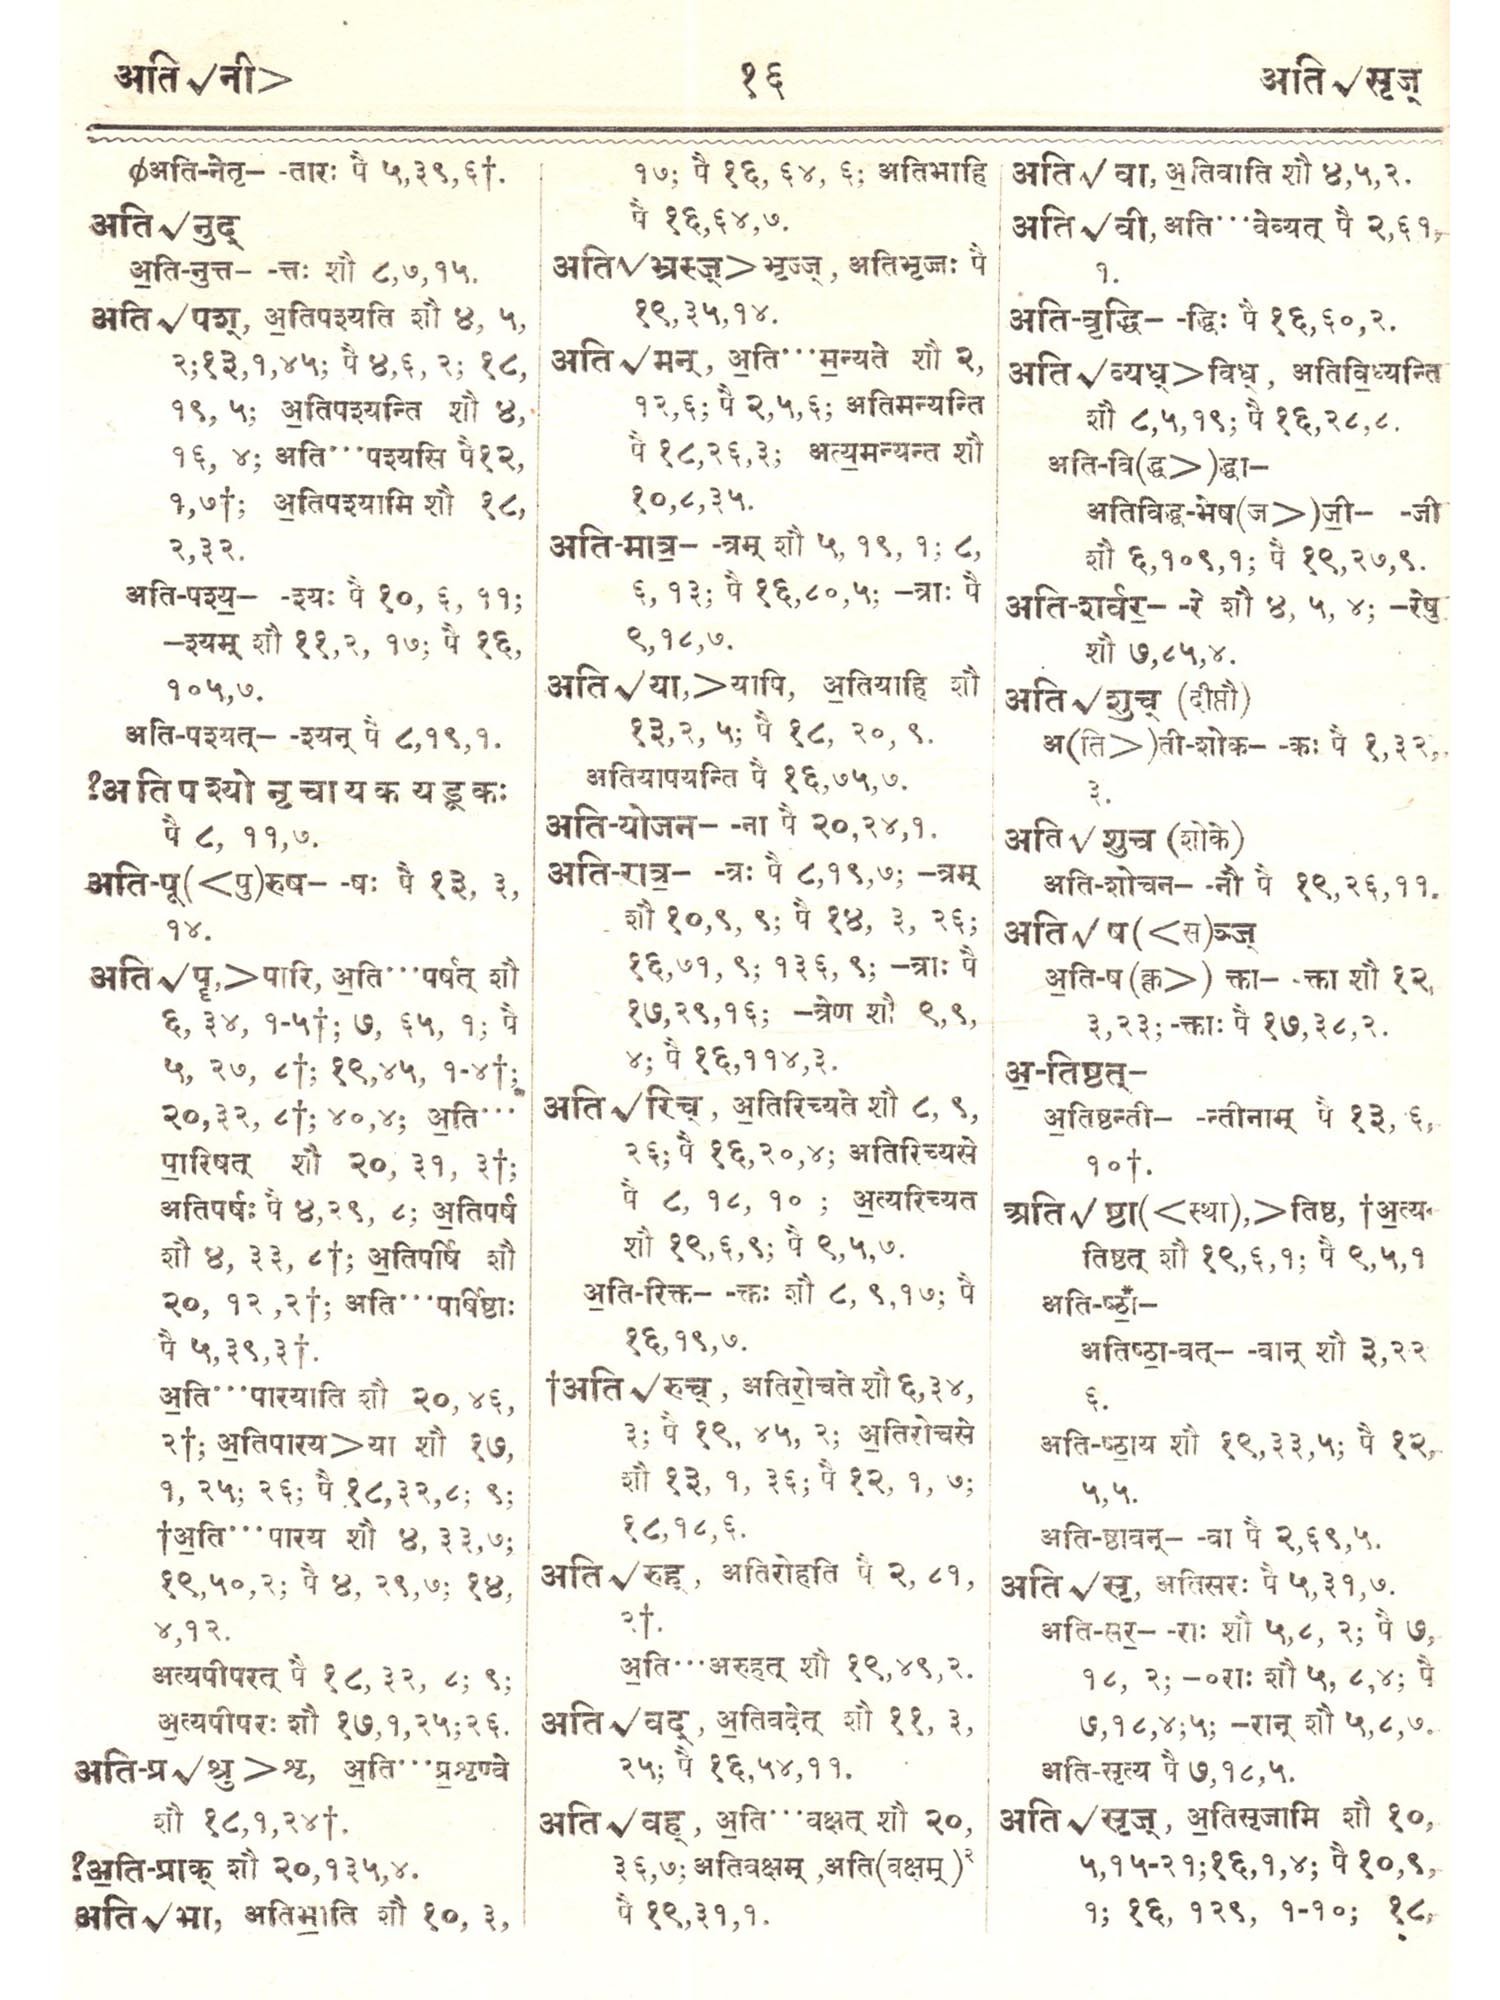 अति√नी>
१६
अति√सृज्
ϕअति-नेतृ– -तारः पै ५,३९,६†.
अति√नुद्
अ॒ति-नुत्त– -त्तः शौ ८,७,१५.
अति√पश्, अ॒तिपश्यति शौ ४, ५,
२;१३,१,४५; पै ४,६, २; १८,
१९, ५; अ॒तिपश्यन्ति शौ ४,
१६, ४; अति···पश्यसि पै१२,
१,७†; अ॒तिपश्यामि शौ १८,
२,३२.
अति-पश्य॒– -श्यः पै १०, ६, ११;
–श्यम् शौ ११,२, १७; पै १६,
१०५,७.
अति-पश्यत्– -श्यन् पै ८,१९,१.
?अतिपश्यो नृचायकयडूकः
पै ८, ११,७.
अति-पू(<पु)रुष– -षः पै १३, ३,
१४.
अति√पॄ,>पारि, अ॒ति···पर्षत् शौ
६, ३४, १-५†; ७, ६५, १; पै
५, २७, ८†; १९,४५, १-४†;
२०,३२, ८†; ४०,४; अ॒ति···
पा॒रिषत् शौ २०, ३१, ३†;
अतिपर्षः पै ४,२९, ८; अ॒तिपर्ष
शौ ४, ३३, ८†; अ॒तिपर्षि शौ
२०, १२ ,२†; अति···पार्षिष्ठाः
पै ५,३९,३†.
अ॒ति···पारयाति शौ २०, ४६,
२†; अ॒तिपारय>या शौ १७,
१, २५; २६; पै १८,३२,८; ९;
†अ॒ति···पारय शौ ४, ३३,७;
१९,५०,२; पै ४, २९,७; १४,
४,१२.
अत्यपीपरत् पै १८, ३२, ८; ९;
अ॒त्यपीपरः शौ १७,१,२५;२६.
अति-प्र√श्रु>शृ, अ॒ति···प्र॒शृण्वे
शौ १८,१,२४†.
?अ॒ति-प्राक् शौ २०,१३५,४.
अति√भा, अतिभा॒ति शौ १०, ३,
१७; पै १६, ६४, ६; अतिभाहि
पै १६,६४,७.
अति√भ्रस्ज्>भृज्ज्, अतिभृज्जः पै
१९,३५,१४.
अति√मन्, अ॒ति···म॒न्यते शौ २,
१२,६; पै २,५,६; अतिमन्यन्ति
पै १८,२६,३; अत्य॒मन्यन्त शौ
१०,८,३५.
अति-मात्र॒– -त्रम् शौ ५, १९, १; ८,
६, १३; पै १६,८०,५; –त्राः पै
९,१८,७.
अति√या,>यापि, अ॒तियाहि शौ
१३,२, ५; पै १८, २०, ९.
अतियापयन्ति पै १६,७५,७.
अति-योजन– -ना पै २०,२४,१.
अति-रात्र॒– -त्रः पै ८,१९,७; –त्रम्
शौ १०,९, ९; पै १४, ३, २६;
१६,७१, ९; १३६, ९; –त्राः पै
१७,२९,१६; –त्रेण शौ ९,९,
४; पै १६,११४,३.
अति√रिच्, अ॒तिरिच्यते शौ ८, ९,
२६; पै १६,२०,४; अतिरिच्यसे
पै ८, १८, १० ; अ॒त्यरिच्यत
शौ १९,६,९; पै ९,५,७.
अ॒ति-रिक्त– -क्तः शौ ८, ९,१७; पै
१६,१९,७.
†अति√रुच्, अतिरो॒चते शौ ६,३४,
३; पै १९, ४५, २; अ॒तिरोचसे
शौ १३, १, ३६; पै १२, १, ७;
१८,१८,६.
अति√रुह्, अतिरोहति पै २, ८१,
२†.
अ॒ति···अरुहत् शौ १९,४९,२.
अति√वद्, अ॒तिवदेत् शौ ११, ३,
२५; पै १६,५४,११.
अति√वह्, अ॒ति···वक्षत् शौ २०,
३६,७; अतिवक्षम् ,अति(वक्षम्)२
पै १९,३१,१.
अति√वा, अ॒तिवाति शौ ४,५,२.
अति√वी, अति···वेव्यत् पै २,६१,
१.
अति-वृद्धि– -द्धिः पै १६,६०,२.
अति√व्यध्>विध्, अतिवि॒ध्यन्ति
शौ ८,५,१९; पै १६,२८,८.
अति-वि(द्ध>)द्धा–
अतिविद्ध-भेष(ज>)जी॒– -जी
शौ ६,१०९,१; पै १९,२७,९.
अति-शर्वर॒– -रे शौ ४, ५, ४; –रेषु
शौ ७,८५,४.
अति√शुच् (दीप्तौ)
अ(ति>)ती-शोक– -कः पै १,३२,
३.
अति√शुच (शोके)
अति-शोचन– -नौ पै १९,२६,११.
अति√ष(<स)ञ्ज्
अ॒ति-ष(क्त>) क्ता– -क्ता शौ १२,
३,२३; -क्ताः पै १७,३८,२.
अ॒-तिष्ठत्–
अ॒तिष्ठन्ती– -न्तीनाम् पै १३, ६,
१०†.
अति√ष्ठा(<स्था),>तिष्ठ, †अ॒त्य-
तिष्ठत् शौ १९,६,१; पै ९,५,१
अति-ष्ठा॒–
अतिष्ठा॒-वत्– -वान् शौ ३,२२
६.
अति-ष्ठा॒य शौ १९,३३,५; पै १२,
५,५.
अति-ष्ठावन्– -वा पै २,६९,५.
अति√सृ, अतिसरः पै ५,३१,७.
अति-सर॒– -राः शौ ५,८, २; पै ७,
१८, २; –०राः शौ ५, ८,४; पै
७,१८,४;५; –रान् शौ ५,८,७.
अति-सृत्य पै ७,१८,५.
अति√सृज्, अ॒तिसृजामि शौ १०,
५,१५-२१;१६,१,४; पै १०,९,
१; १६, १२९, १-१०; १८,